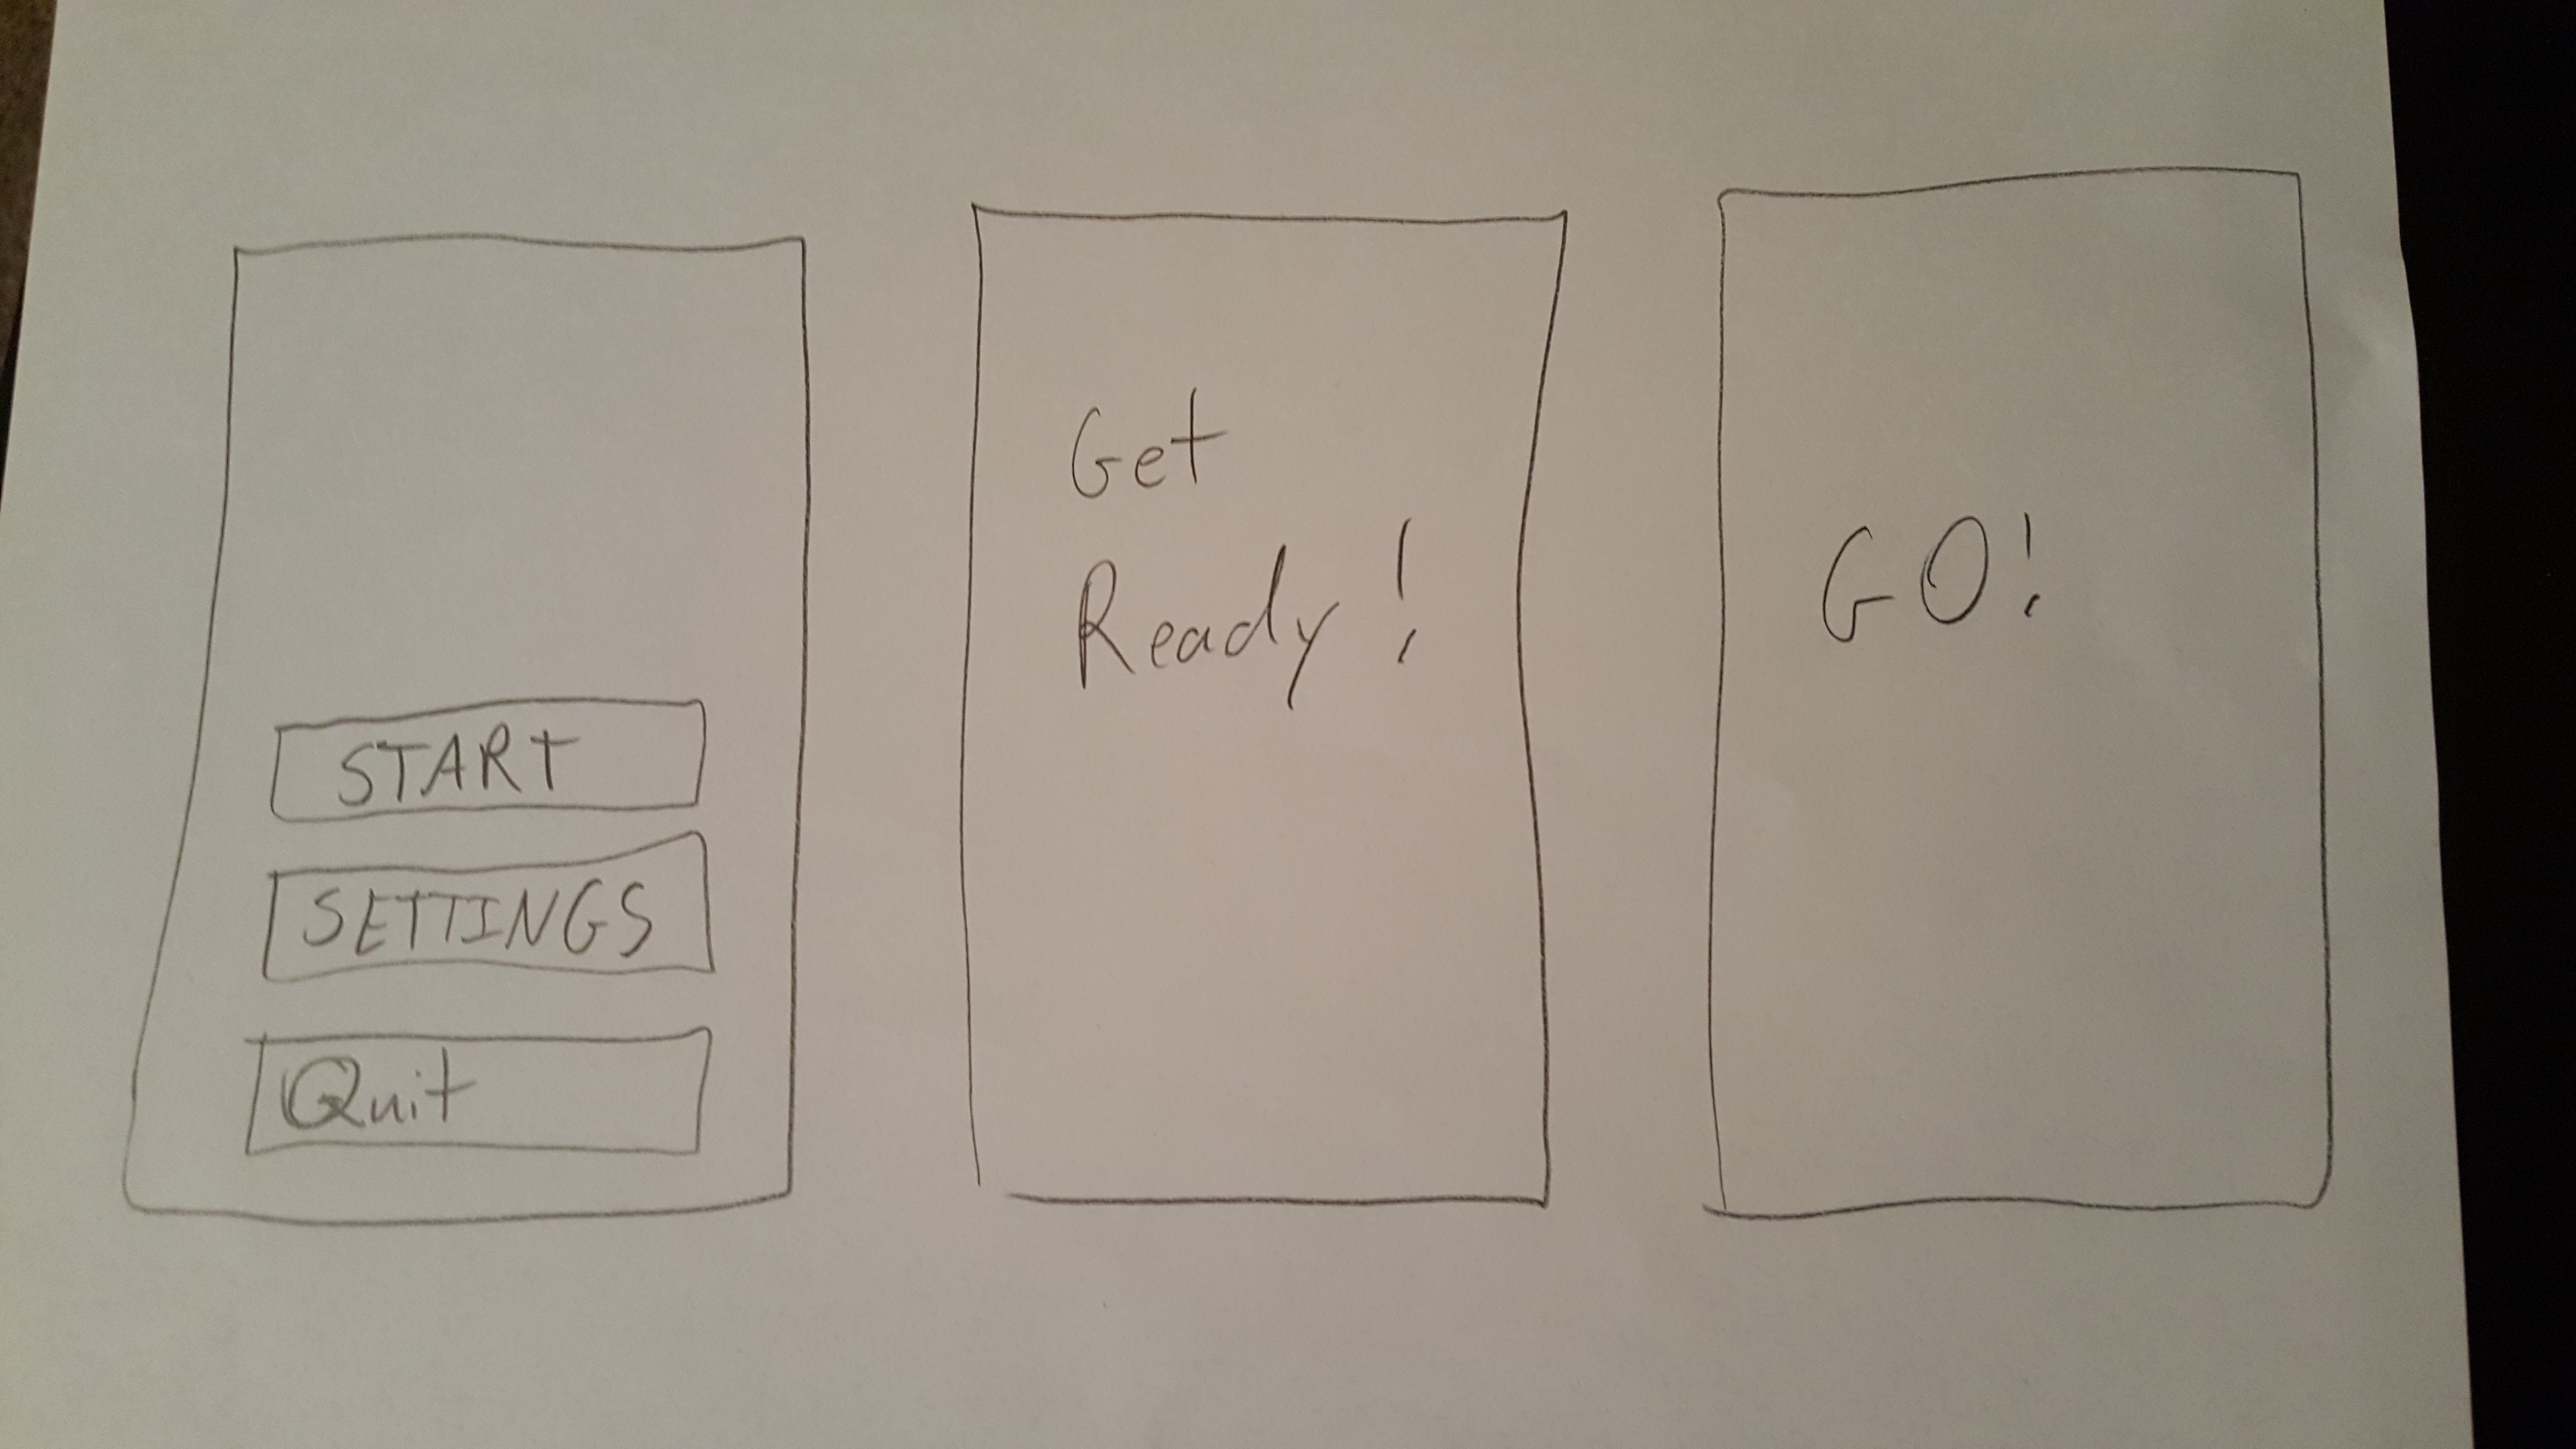 START
SETTINGS
Quit
Get
Ready!
GO!